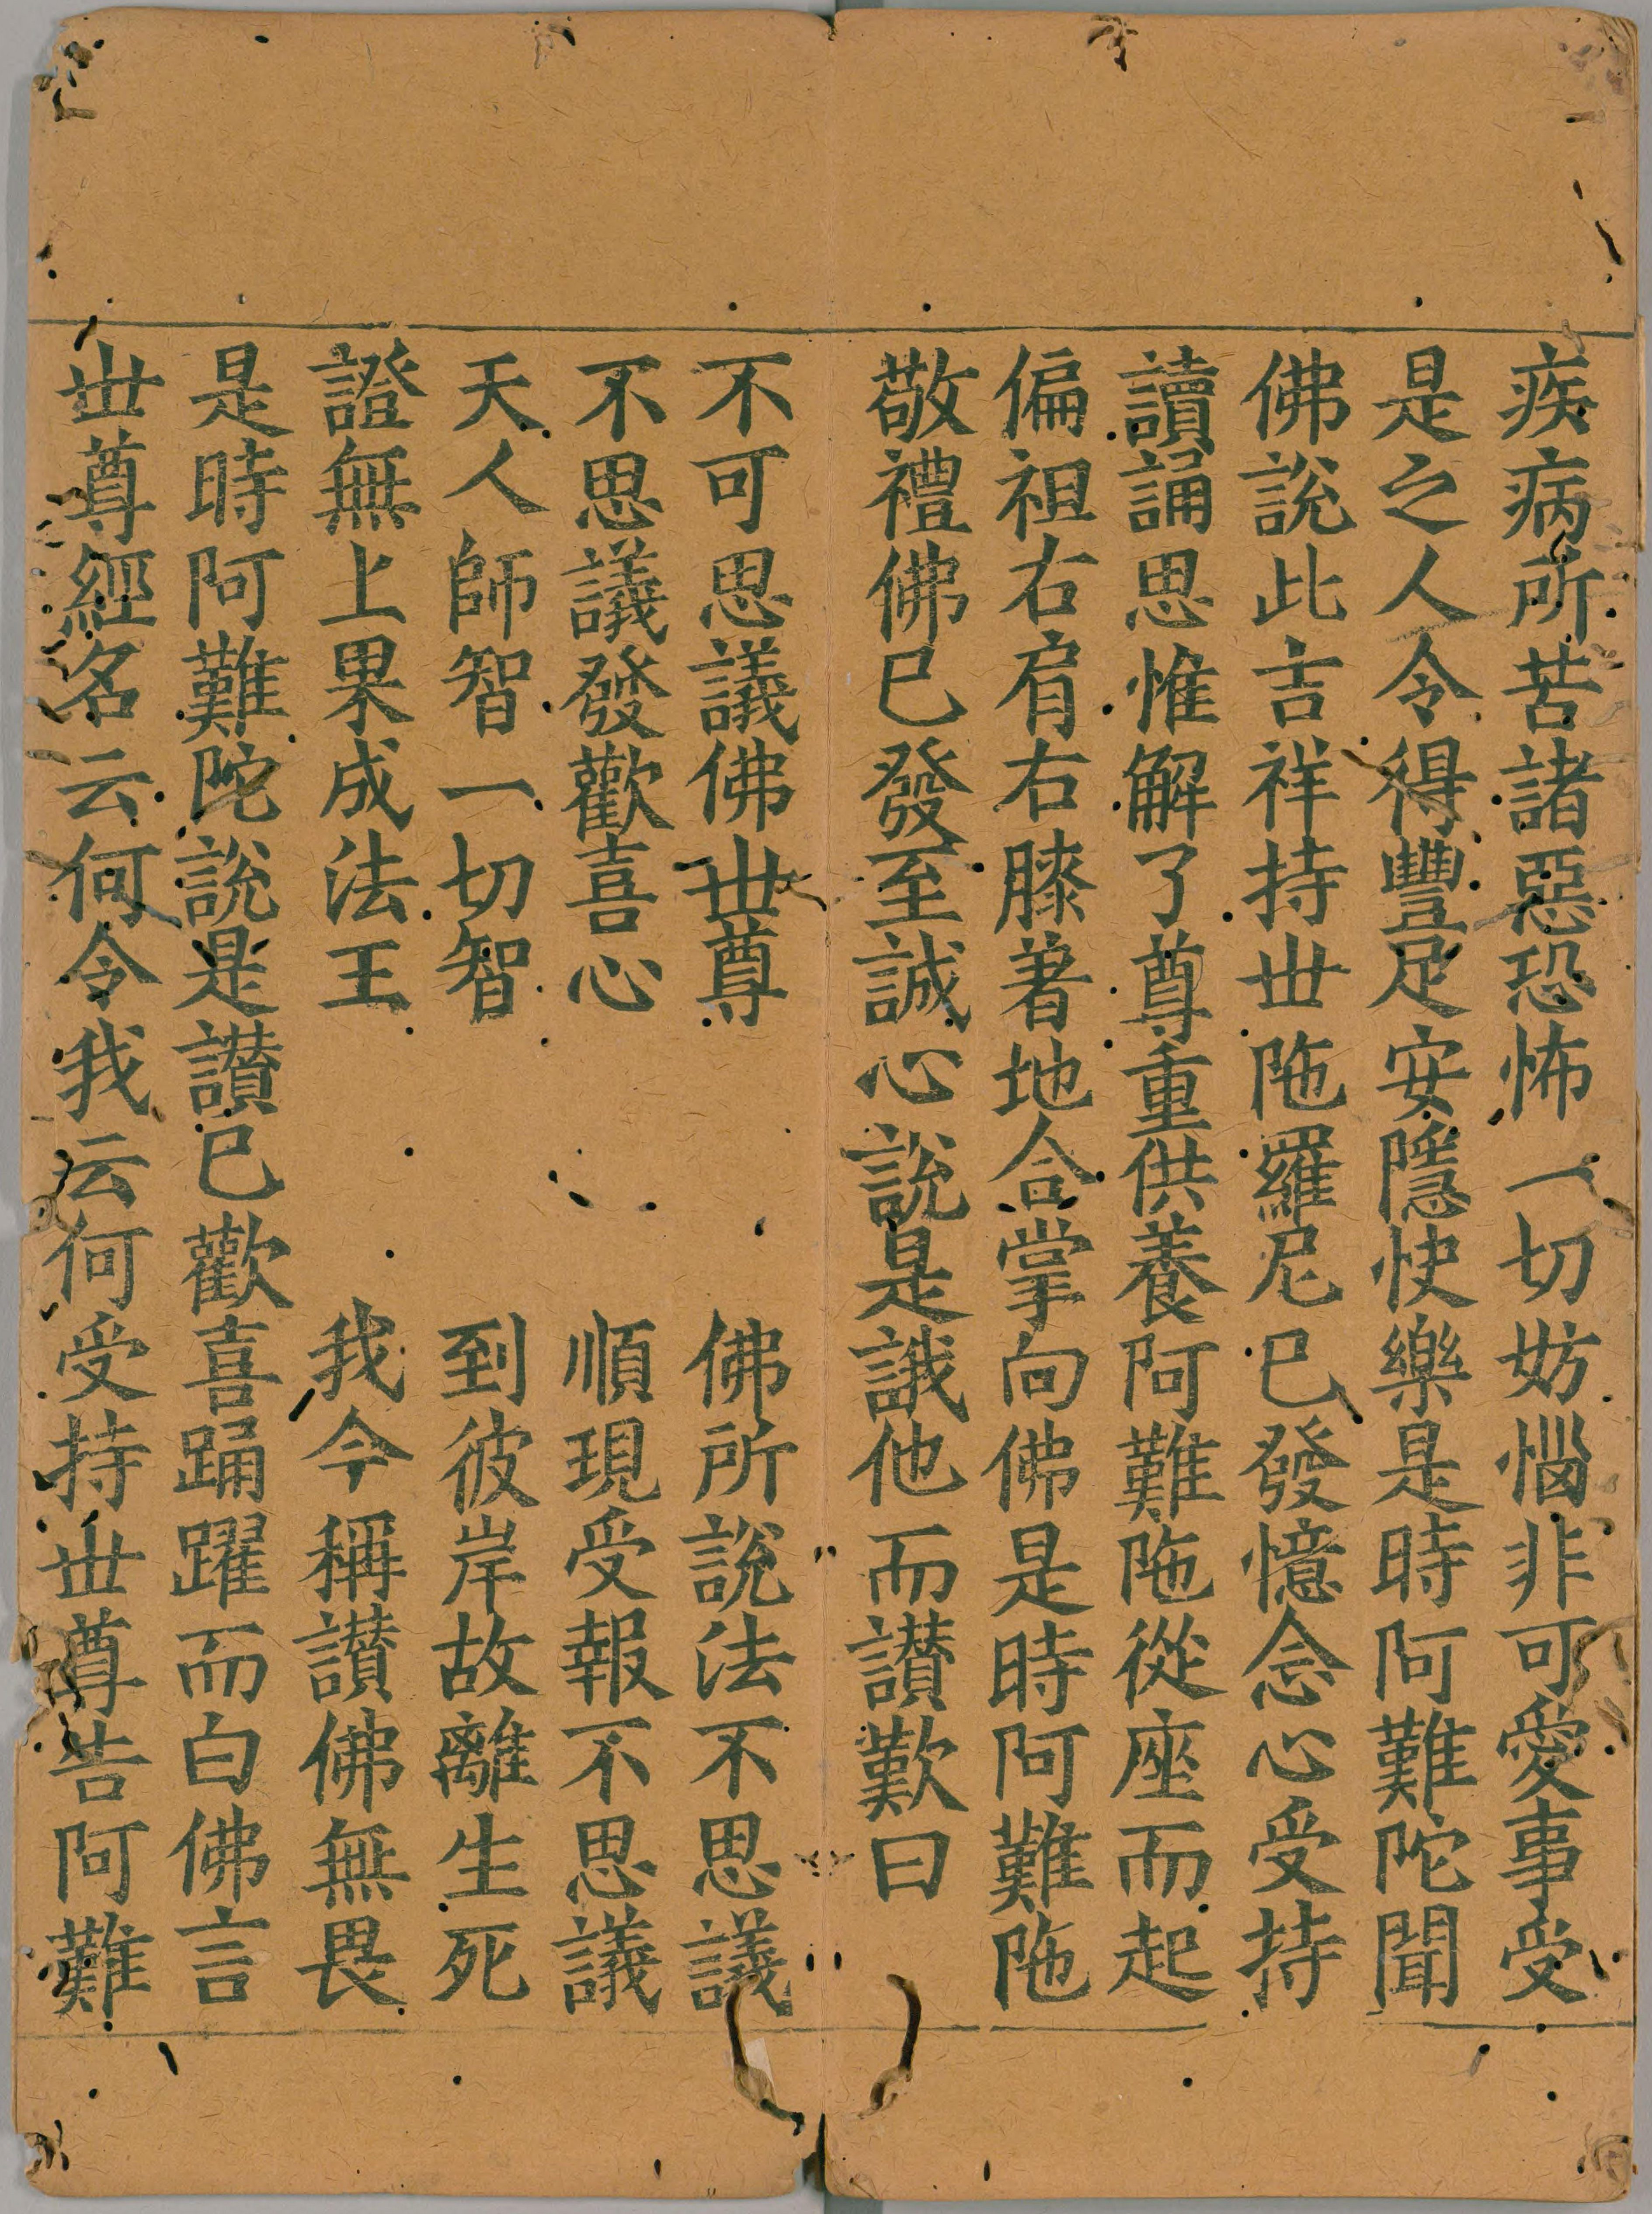 疾病所苦諸惡恐怖一切妨惱非可愛事受
是之人令得豐足安隱快樂是時阿難陀聞
佛說此吉祥持世陁羅尼已發憶念心受持
讀誦思惟解了尊重供養阿難陁從座而起
偏袒右肩右膝著地合掌向佛是時阿難陁
敬禮佛已發至誠心說是誐他而讃歎曰
不可思議佛世尊　佛所說法不思議
不思議發歡喜心　順現受報不思議
天人師智一切智　到彼岸故離生死
證無上果成法王　我今稱讃佛無畏
是時阿難陀說是讃已歡喜踊躍而白佛言
世尊經名云何令我云何受持世尊告阿難